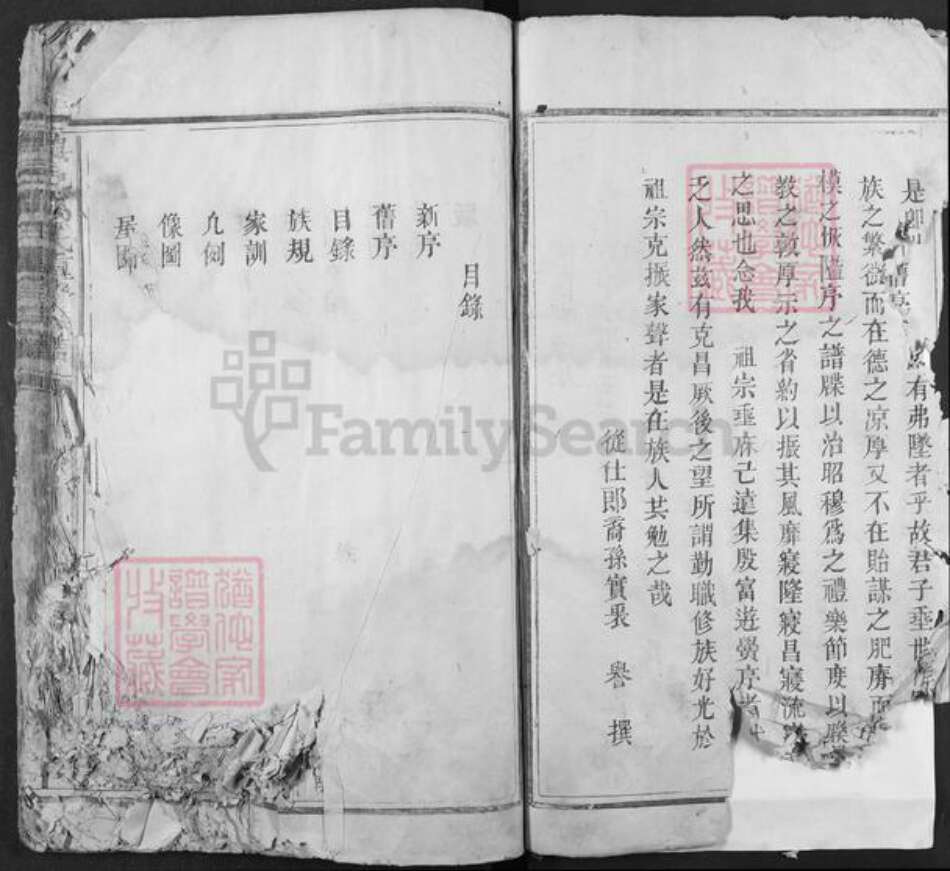 是 有弗墜者乎故君子垂世
族之繁微而在德之凉厚又不在貽謀之肥瘠而
模之恢隘序之譜牒以治昭穆爲之禮樂節度以聯
教之敦厚示之省約以振其風靡寢隆寢昌寢流
之思也念我 祖宗垂庥已遠集殷富遊黌序者
乏人然茲有克昌厥後之望所謂勤職修族好光於
祖宗克振家聲者是在族人共勉之哉
從仕郎裔孫實 譽 撰
目錄
新序
舊序
目錄
族規
家訓
凡例
像圖
屋圖
猶他家
譜學會
收藏
猶他家
譜學會
收藏
FamilySearch